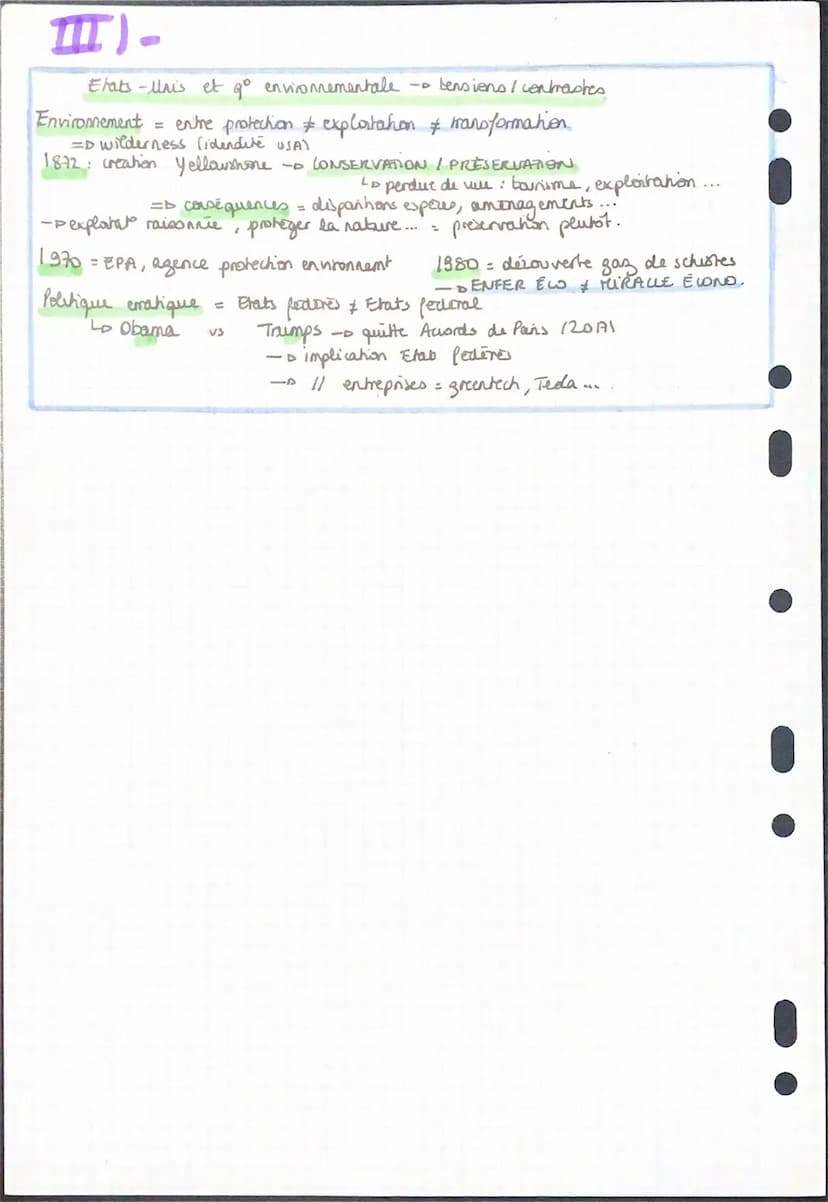 III) -
Etats-Unis et q° environnementale → tensions / contrastes
Environnement = entre protection ≠ exploitation ≠ transformation
⇒ wilderness (idendité USA)
1872 : création Yellowstone → CONSERVATION / PRÉSERVATION
↳ perdue de vue : tourisme, exploitation ...
⇒ conséquences = disparitions espèces, aménagements ...
→ exploitat° raisonnée, protéger la nature ... = préservation plutôt.
1970 = EPA, agence protection environnemt 1980 = découverte gaz de schistes
→ ENFER ÉCO ≠ MIRACLE ÉCONO.
Politique erratique = Etats fédérés ≠ Etats fédéral
↳ Obama vs Trumps → quitte Accords de Paris (2017)
→ implication Etats fédérés
→ // entreprises = greentech, Tesla ...